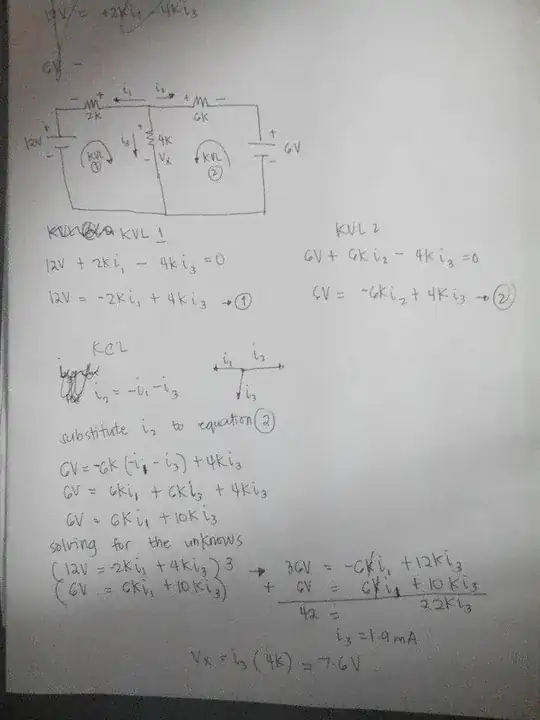 12V = +2Ki₁ - 4Ki₃
6V -
- + i₁ i₂ + -
2K 6K
12V + - KVL ① i₃ + 4K - Vx KVL ② + 6V -
KVL 1 KVL 2
12V + 2Ki₁ - 4Ki₃ = 0 6V + 6Ki₂ - 4Ki₃ = 0
12V = -2Ki₁ + 4Ki₃ → ① 6V = -6Ki₂ + 4Ki₃ → ②
KCL
i₁ i₂
i₂ = -i₁ - i₃ i₃
substitute i₂ to equation ②
6V = -6K (-i₁ - i₃) + 4Ki₃
6V = 6Ki₁ + 6Ki₃ + 4Ki₃
6V = 6Ki₁ + 10Ki₃
solving for the unknows
(12V = -2Ki₁ + 4Ki₃) 3 → 36V = -6Ki₁ + 12Ki₃
(6V = 6Ki₁ + 10Ki₃) + 6V = 6Ki₁ + 10Ki₃
42 = 22Ki₃
i₃ = 1.9mA
Vx = i₃ (4K) = 7.6V